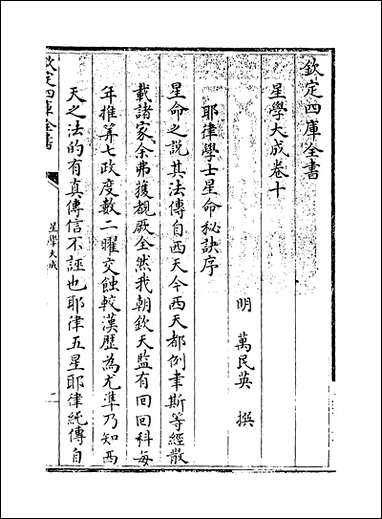 欽定四庫全書
星學大成卷十
明 萬民英 撰
耶律學士星命秘訣序
星命之說其法傳自西天今西天都例聿斯等經散
載諸家余弗獲覩厥全然我朝欽天監有回回科每
年推筭七政度數二曜交蝕較漢歷為尤準乃知西
天之法的有真傳信不誣也耶律五星耶律純傳自
欽定四庫全書
星學大成
一